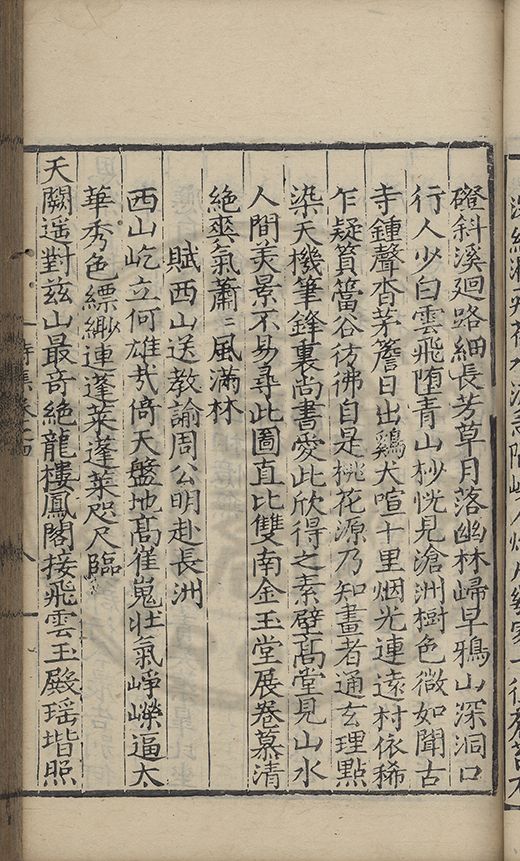 磴斜溪廻路細長芳草月落幽林歸早鴉山深洞口
行人少白雲飛堕青山杪恍見滄洲樹色微如聞古
寺鍾聲杳茅簷日出鷄犬喧十里烟光連遠村依稀
乍疑篔簹谷彷彿自是桃花源乃知畫者通玄理點
染天機筆鋒裏尚書愛此欣得之素壁髙堂見山水
人間美景不易尋此圖直比雙南金玉堂展卷慕清
絶爽氣蕭〻風滿林
賦西山送教諭周公明赴長洲
西山屹立何雄㢤倚天盤地髙崔嵬壮氣崢嶸逼太
華秀色縹緲連蓬萊蓬萊咫尺臨
天闕遥對兹山最竒絶龍樓鳳閣接飛雲玉殿瑶堦照